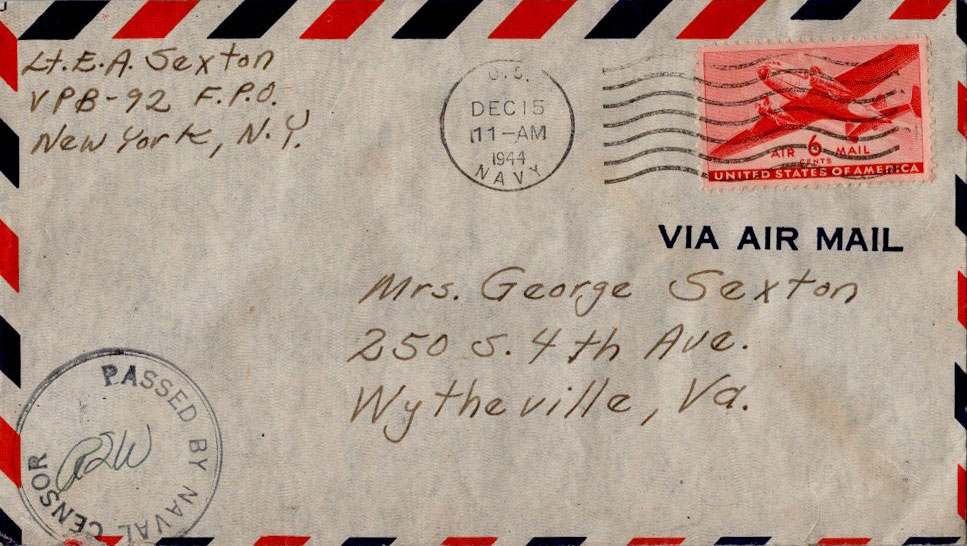 Lt. E. A. Sexton
VPB-92 F.P.O.
New York, N.Y.
U.S.
DEC 15
11-AM
1944
NAVY
AIR 6 MAIL
CENTS
UNITED STATES OF AMERICA
VIA AIR MAIL
Mrs. George Sexton
250 S. 4th Ave.
Wytheville, Va.
PASSED BY NAVAL CENSOR